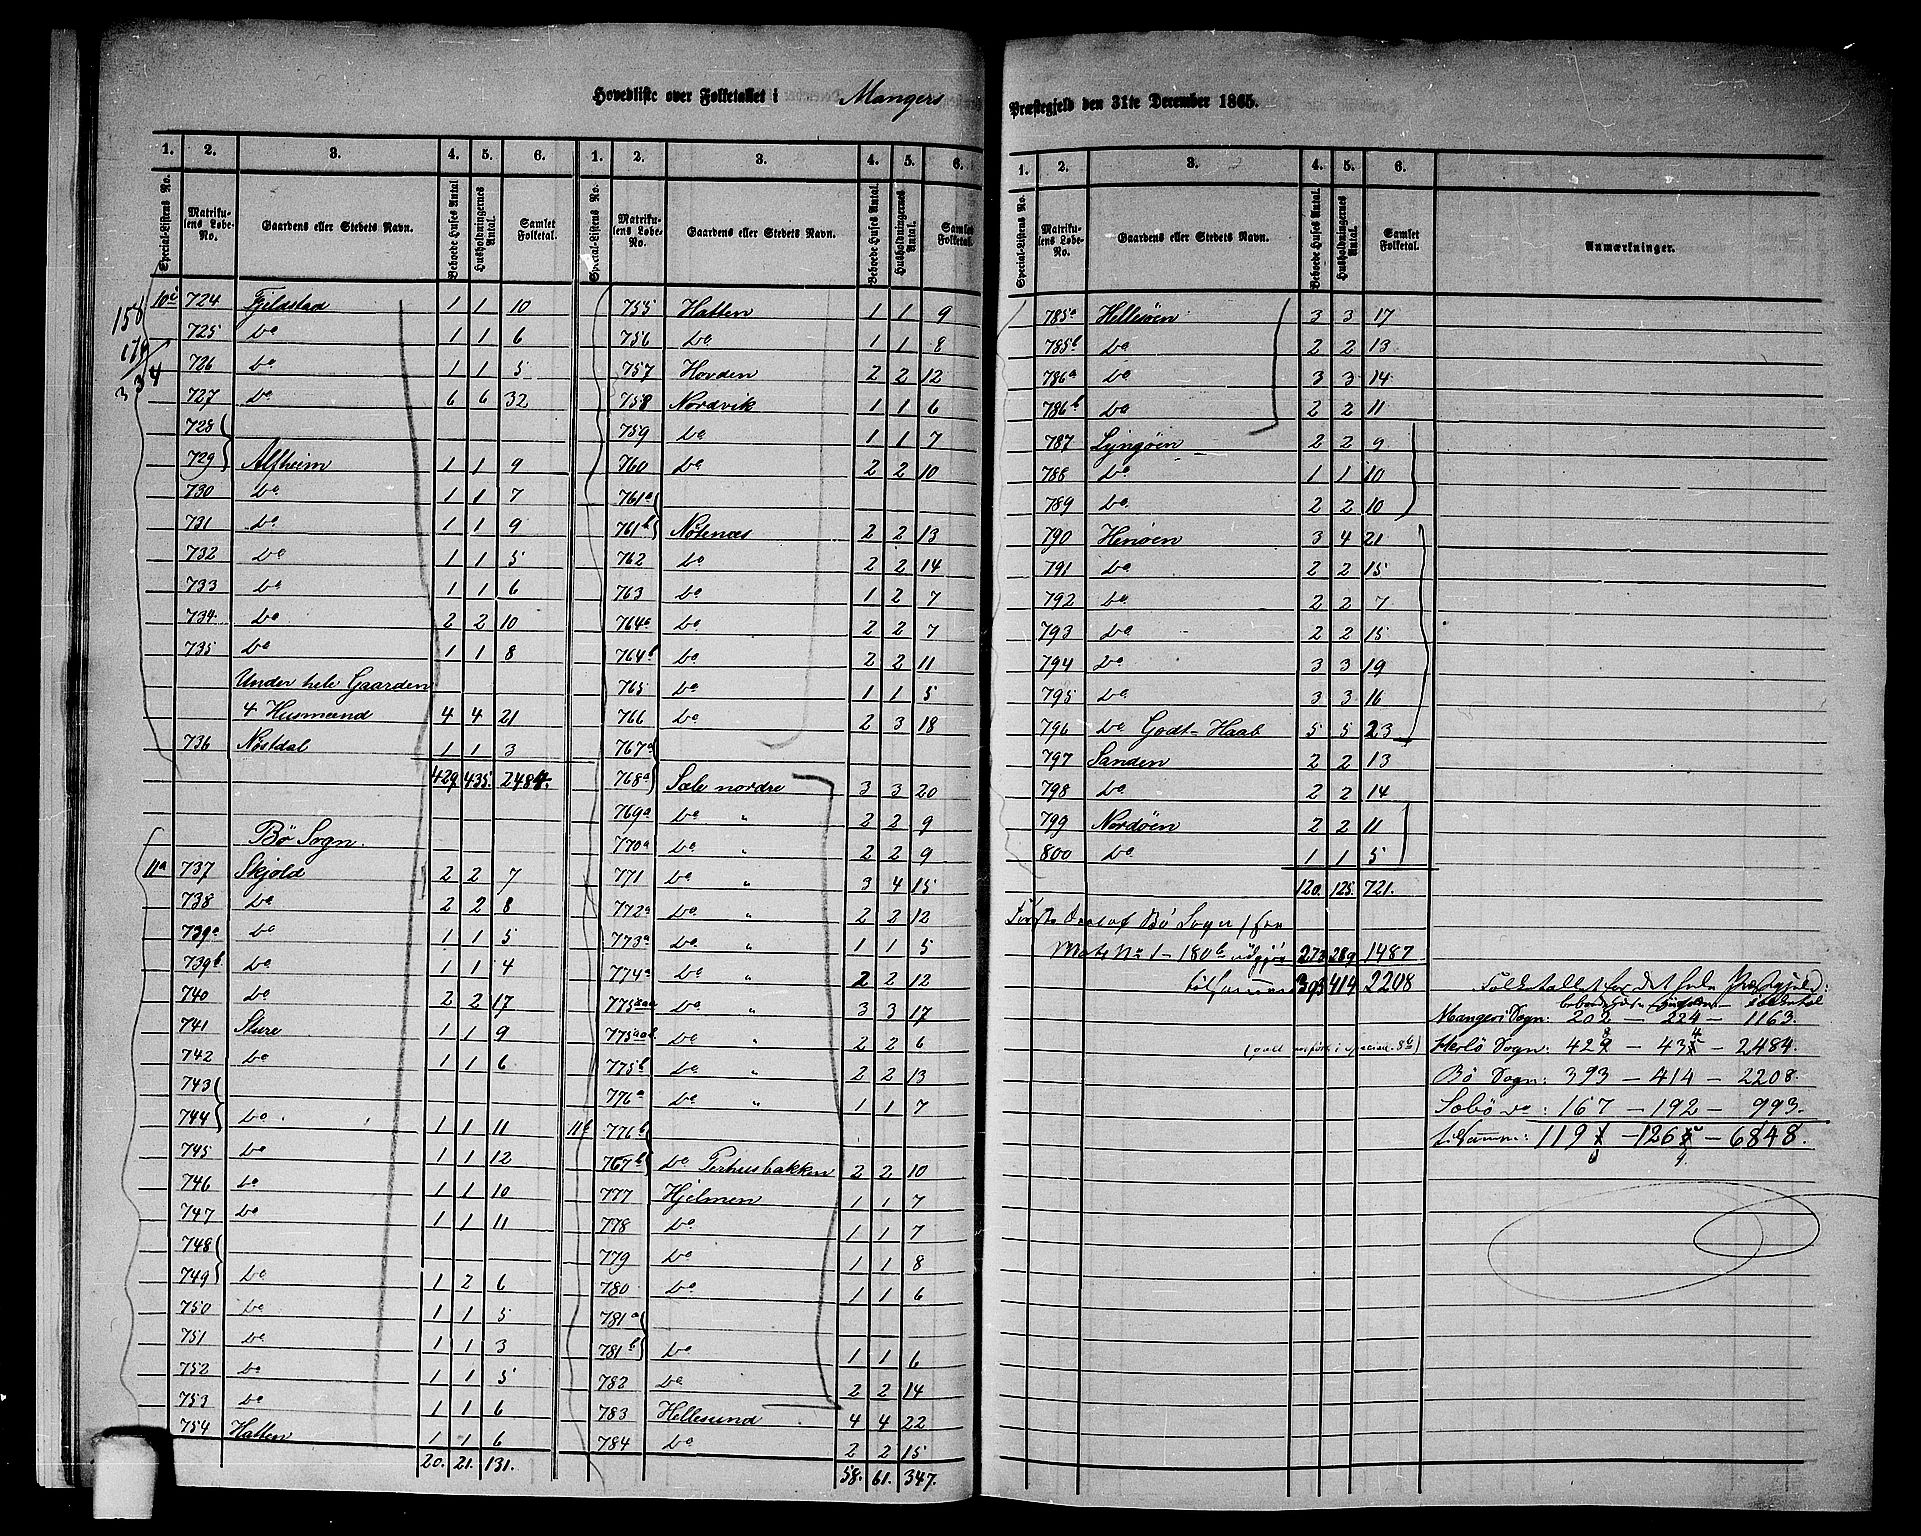 Hovedliste over Folketallet i Mangers Præstegjeld den 31te December 1865.
1. 2. 3. 4. 5. 6. 1. 2. 3. 4. 5. 6.
Special-Listens No. Matrikulens Løbe-No. Gaardens eller Stedets Navn. Beboede Huses Antal Husholdningernes Antal. Samlet Folketal.
Special-Listens No. Matrikulens Løbe-No. Gaardens eller Stedets Navn. Beboede Huses Antal. Husholdningernes Antal. Samlet Folketal.
158
10c 724 Fjeldstad 1 1 10
725 Do 1 1 6
726 Do 1 1 5
727 Do 6 6 32
728
729 Alfheim 1 1 9
730 Do 1 1 7
731 Do 1 1 9
732 Do 1 1 5
733 Do 1 1 6
734 Do 2 2 10
735 Do 1 1 8
Under hele Gaarden
4 Husmænd 4 4 21
736 Nøstdal 1 1 3
429. 435. 2484.
Bø Sogn.
11a 737 Skjold 2 2 7
738 Do 2 2 8
739a Do 1 1 5
739b Do 1 1 4
740 Do 2 2 17
741 Sture 1 1 9
742 Do 1 1 6
743
744 Do 1 1 11
745 Do 1 1 12
746 Do 1 1 10
747 Do 1 1 11
748
749 Do 1 2 6
750 Do 1 1 5
751 Do 1 1 3
752 Do 1 1 5
753 Do 1 1 6
754 Hatten 1 1 6
20. 21. 131.
755 Hatten 1 1 9
756 Do 1 1 8
757 Hovden 2 2 12
758 Nordvik 1 1 6
759 Do 1 1 7
760 Do 2 2 10
761a
761b Nøtenæs 2 2 13
762 Do 2 2 14
763 Do 1 2 7
764a Do 2 2 7
764b Do 2 2 11
765 Do 1 1 5
766 Do 2 3 18
767a
768a Sæle nordre 3 3 20
769a Do " 2 2 9
770a Do " 2 2 9
771 Do " 3 4 15
772a Do " 2 2 12
773a Do " 1 1 5
774a Do " 2 2 12
775aaa Do " 3 3 17
775aab Do " 2 2 6
775b Do " 2 2 13
776a Do " 1 1 7
11b 776b
767b Do Perhusbakken 2 2 10
777 Hjelmen 1 1 7
778 Do 1 1 7
779 Do 1 1 8
780 Do 1 1 6
781a
781b Do 1 1 6
782 Do 2 2 14
783 Hellesund 4 4 22
784 Do 2 2 15
58. 61. 347.
1. 2. 3. 4. 5. 6.
Special-Listens No. Matrikulens Løbe-No. Gaardens eller Stedets Navn. Beboede Huses Antal. Husholdningernes Antal. Samlet Folketal. Anmærkninger.
785a Hellesøen 3 3 17
785b Do 2 2 13
786a Do 3 3 14
786b Do 2 2 11
787 Lyngøen 2 2 9
788 Do 1 1 10
789 Do 2 2 10
790 Hernøen 3 4 21
791 Do 2 2 15
792 Do 2 2 7
793 Do 2 2 15
794 Do 3 3 19
795 Do 3 3 16
796 Do Godt-Haab 5 5 23
797 Sanden 2 2 13
798 Do 2 2 14
799 Nordøen 2 2 11
800 Do 1 1 5
120. 125. 721.
Første Deel af Bø Sogn, fra
Matr No 1 - 180b udgjør 273 289 1487
tilsammen 393 414 2208
Folketallet for det hele Præstgjeld:
Mangers Sogn: 202 - 224 - 1163.
Herlø Sogn: 429 - 435 - 2484.
Bø Sogn: 393 - 414 - 2208.
Sæbø Do: 167 - 192 - 993.
tilsamm: 119 - 126 - 6848.